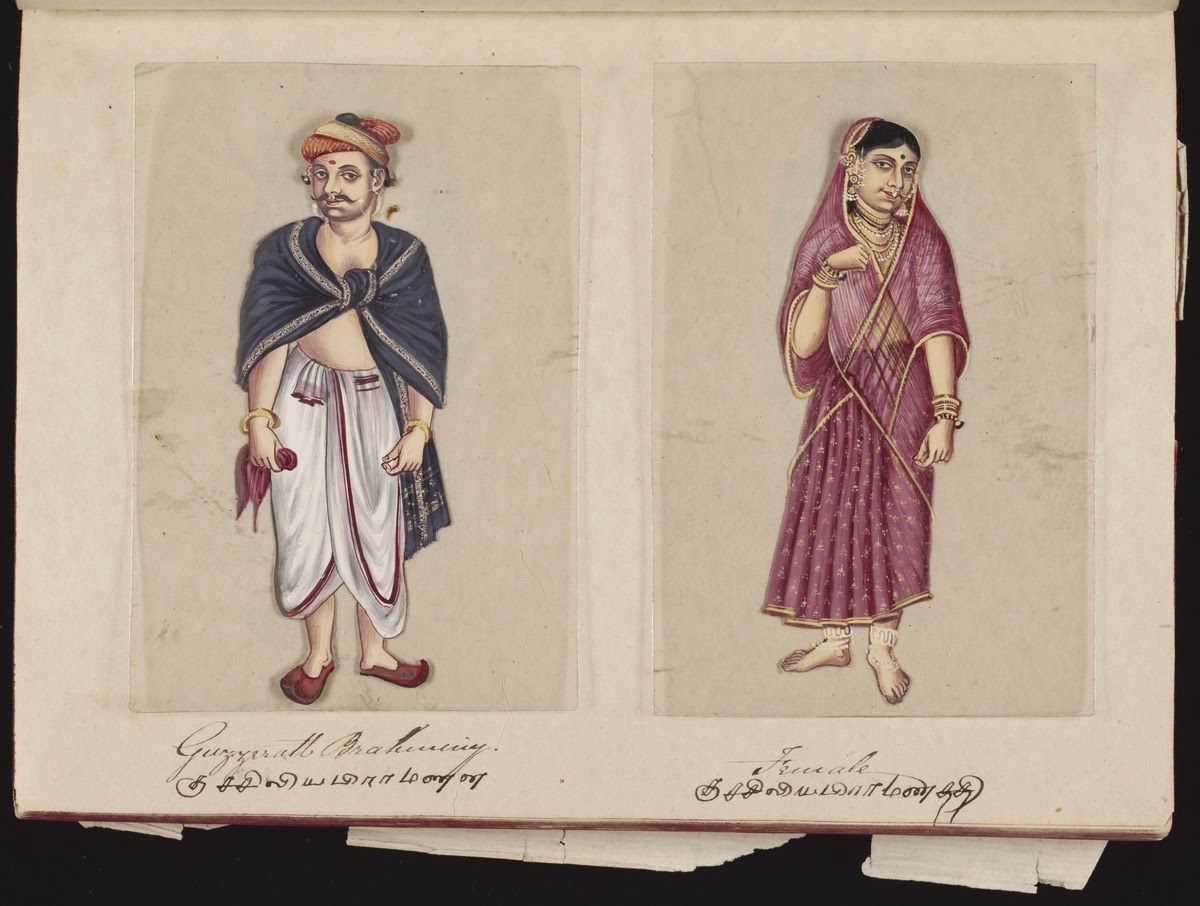 Guzzerath Brahminy.
குசசிலியபிராமணன
Female
குசசிலியபிராமணததி